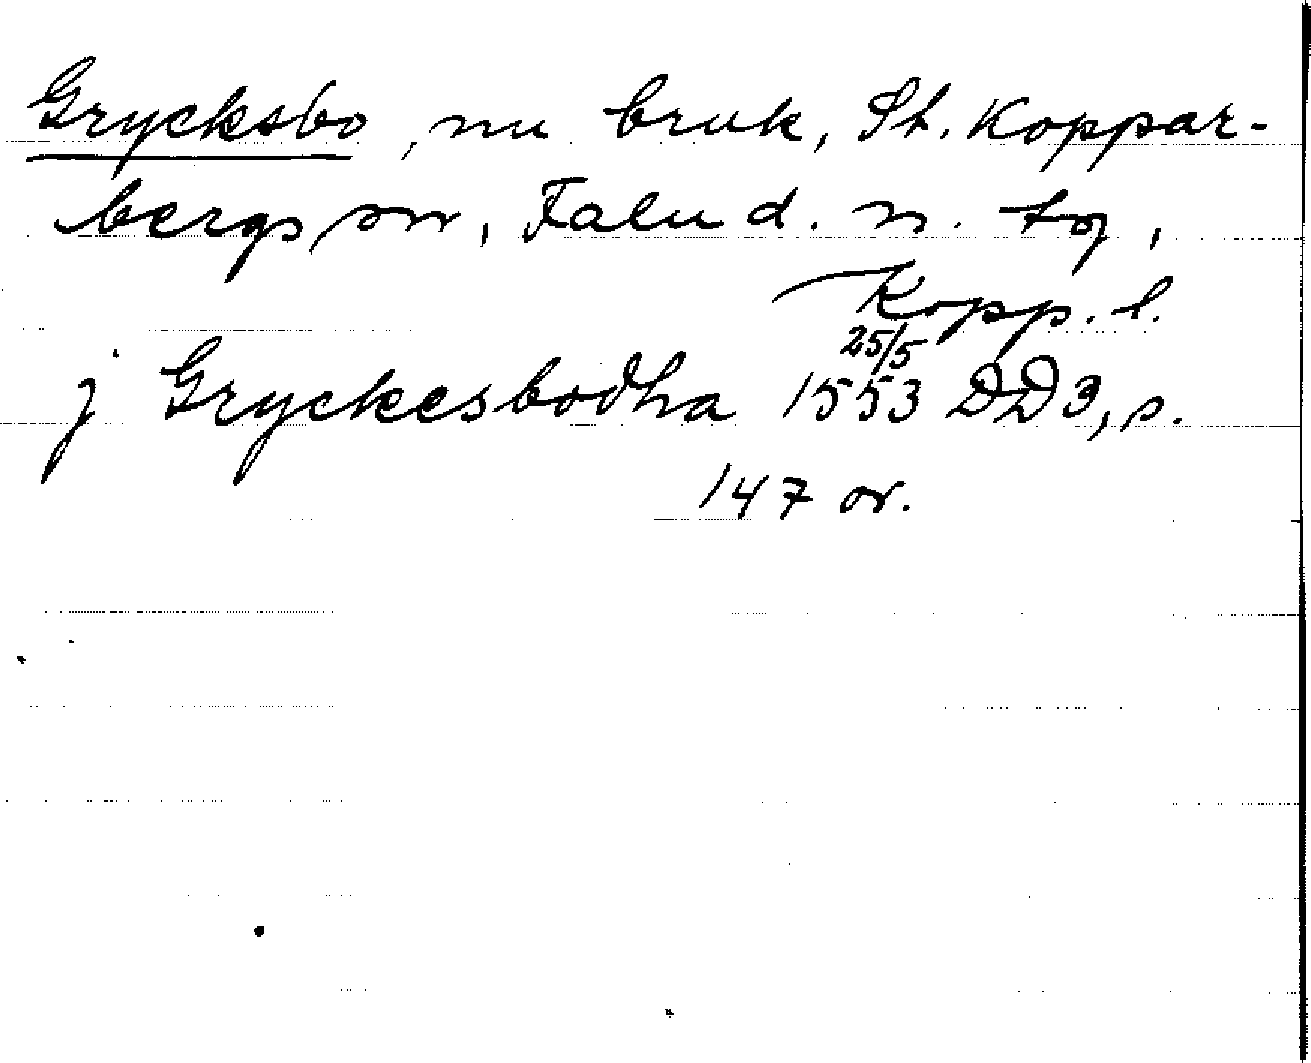 Grycksbo, nu bruk, St. Koppar-
bergs sn, Falu d. n. tg,
Kopp. l.
j Gryckesbodha 25/5 1553 DD3, s.
147 or.